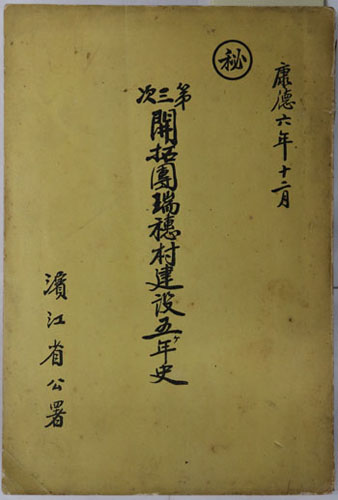 秘
康德六年十二月
第三次
開拓團瑞穗村建設五ケ年史
濱江省公署